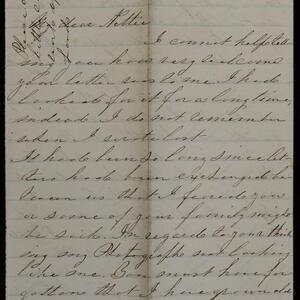 My dear Nettie
I cannot help tell
ing you how very welcome
your letter was to me I had
looked for it for a long time,
indeed I do not remember
when I wrote last
It had been so long since let
ters had been exchanged be
tween us that I feared you
or some of your family might
be sick. In regards to your think
ing my Photographs not looking
like me. You must have for
gotten that I have grown old